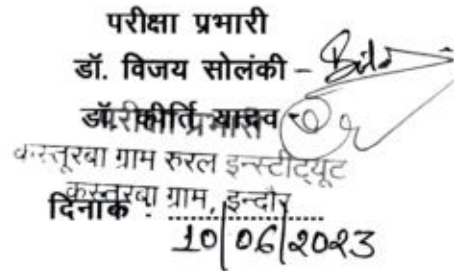 परीक्षा प्रभारी
डॉ. विजय सोलंकी -
डॉ. कीर्ति यादव -
परीक्षा प्रभारी
कस्तूरबा ग्राम रुरल इन्स्टीट्यूट
कस्तूरबा ग्राम, इन्दौर
दिनांक :
10/06/2023